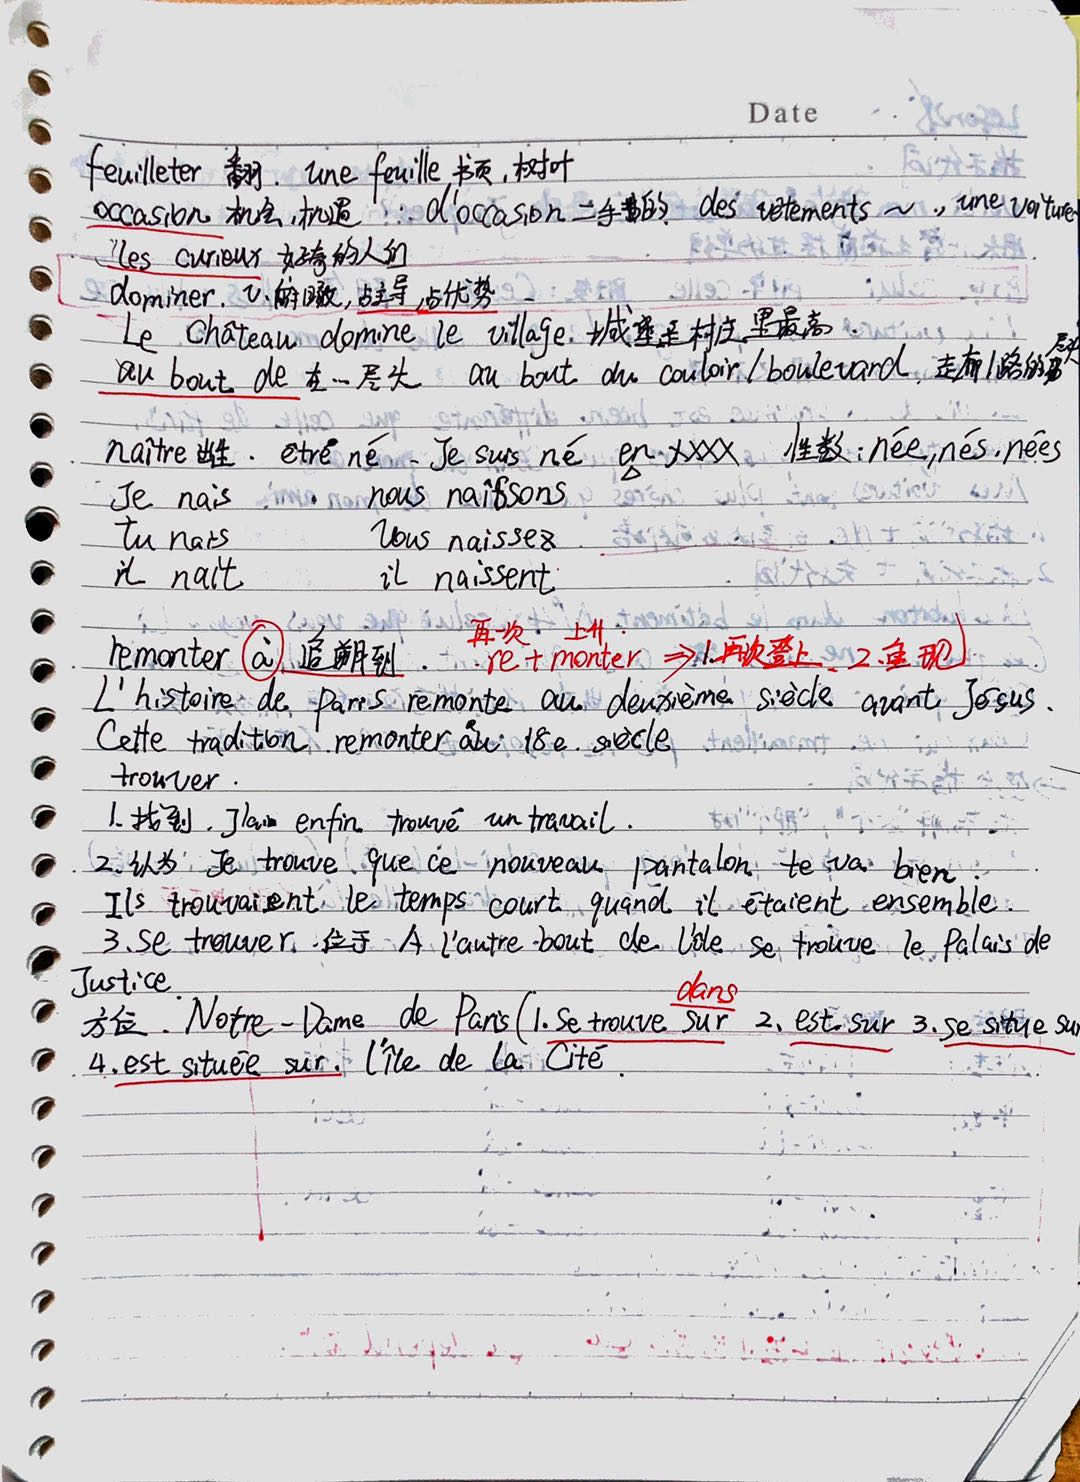 Date
feuilleter 翻. une feuille 书页,树叶
occasion 机会,机遇 d'occasion 二手的. des vêtements ~, une voiture
les curieux 好奇的人们
dominer. v. 俯瞰,占主导,占优势
Le Château domine le village. 城堡是村庄里最高
au bout de 在...尽头 au bout du couloir/boulevard. 走廊/路的尽头
naître 出生. etre né. Je suis né en XXXX 性数: née, nés, nées
Je nais nous naissons
Tu nais Vous naissez
il nait il naissent
再一次 上升
remonter à 追溯到. re + monter ⇒ 1.再次登上 2.重现
L'histoire de Paris remonte au deuxième siècle avant Jésus.
Cette tradition remonter au 18e siècle
trouver.
1. 找到. J'ai enfin trouvé un travail.
2. 认为 Je trouve que ce nouveau pantalon te va bien.
Ils trouvaient le temps court quand il étaient ensemble.
3. se trouver 位于 A l'autre bout de l'île se trouve le Palais de
Justice.
dans
方位. Notre-Dame de Paris (1. se trouve sur 2. est sur 3. se situe sur
4. est située sur. l'île de la Cité